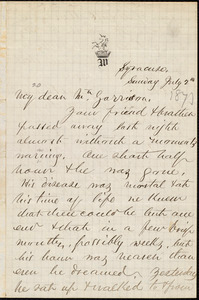 W
Syracuse,
Sunday July 2th
1873
My dear Mr. Garrison,
Your friend & brother
passed away last night
almost without a moment's
warning. One short half
hour & he was gone.
His disease was mortal & at
his time of life we knew
that there could be but one
end & that in a few brief
months, possibly weeks, but
his hour was nearer than
even he dreamed. Yesterday
he sat up & walked to & from